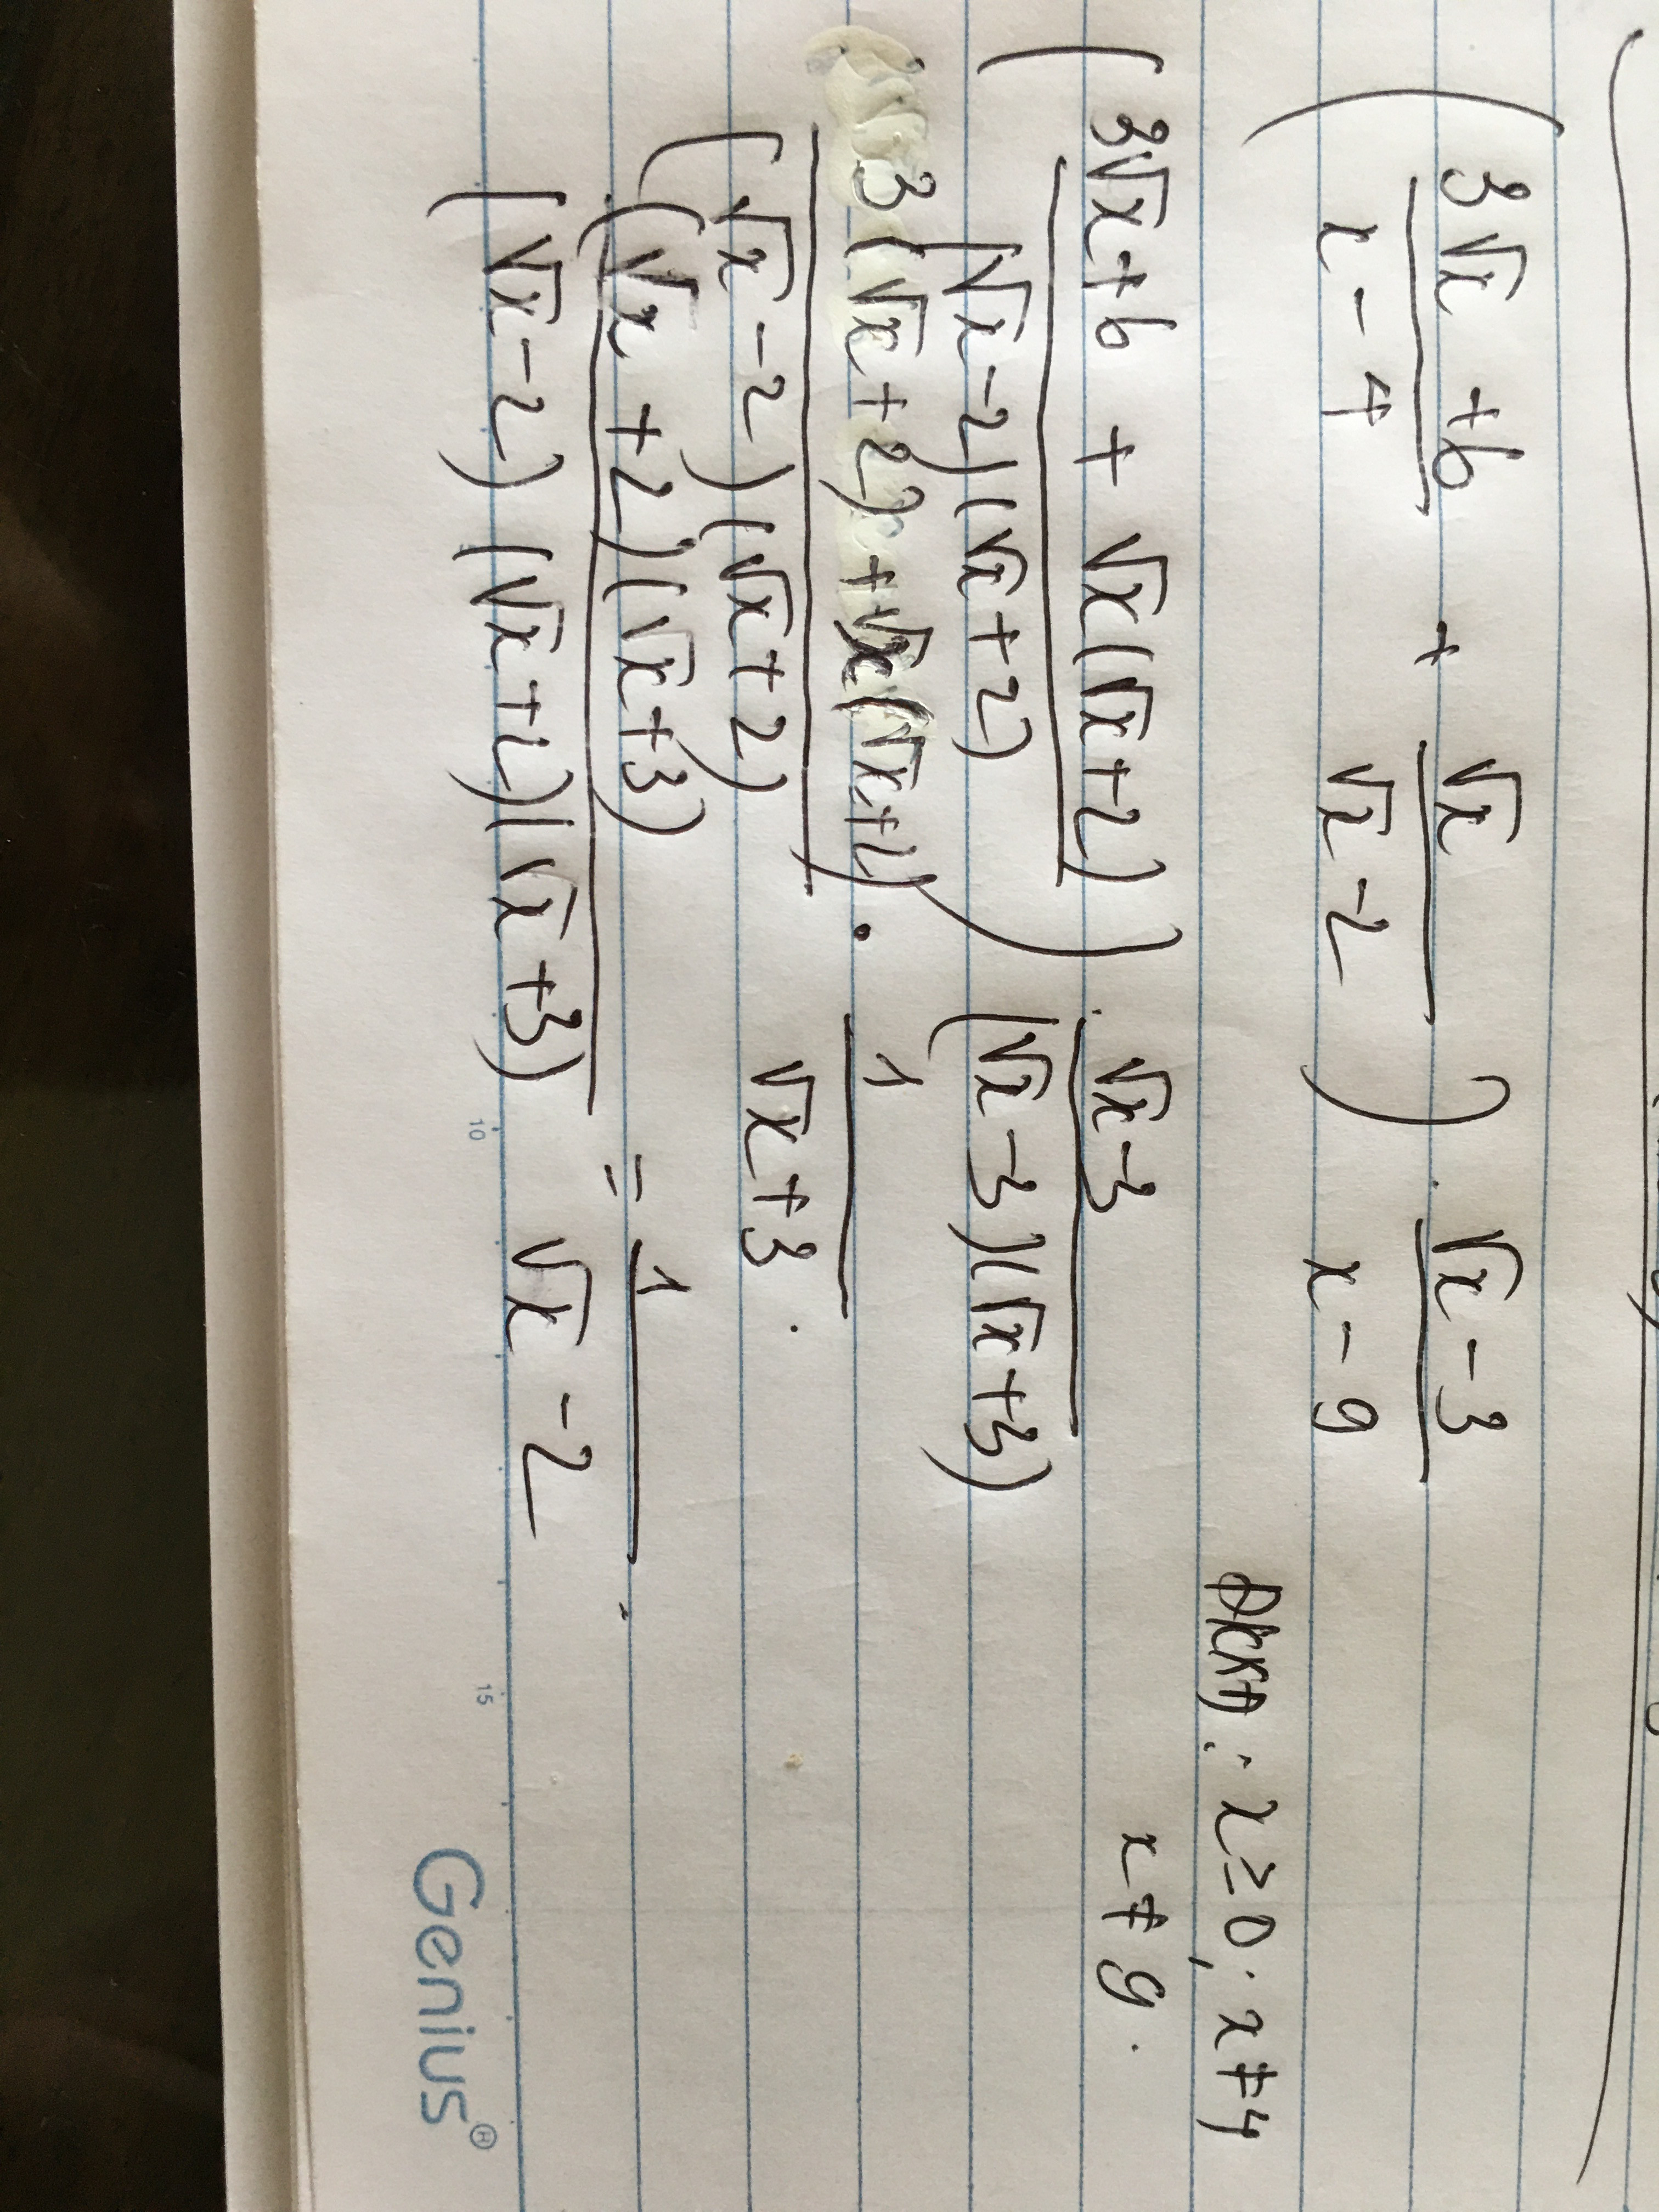 ( 3√x + 6 / x - 4 + √x / √x - 2 ) . √x - 3 / x - 9
ĐKXĐ : x ≥ 0 ; x ≠ 4
x ≠ 9 .
( 3√x + 6 + √x(√x + 2) / (√x - 2)(√x + 2) ) . √x - 3 / (√x - 3)(√x + 3)
3(√x + 2) + √x(√x + 2) / (√x - 2)(√x + 2) . 1 / √x + 3 .
(√x + 2)(√x + 3) / (√x - 2)(√x + 2)(√x + 3) = 1 / √x - 2 .
10 15
Genius®